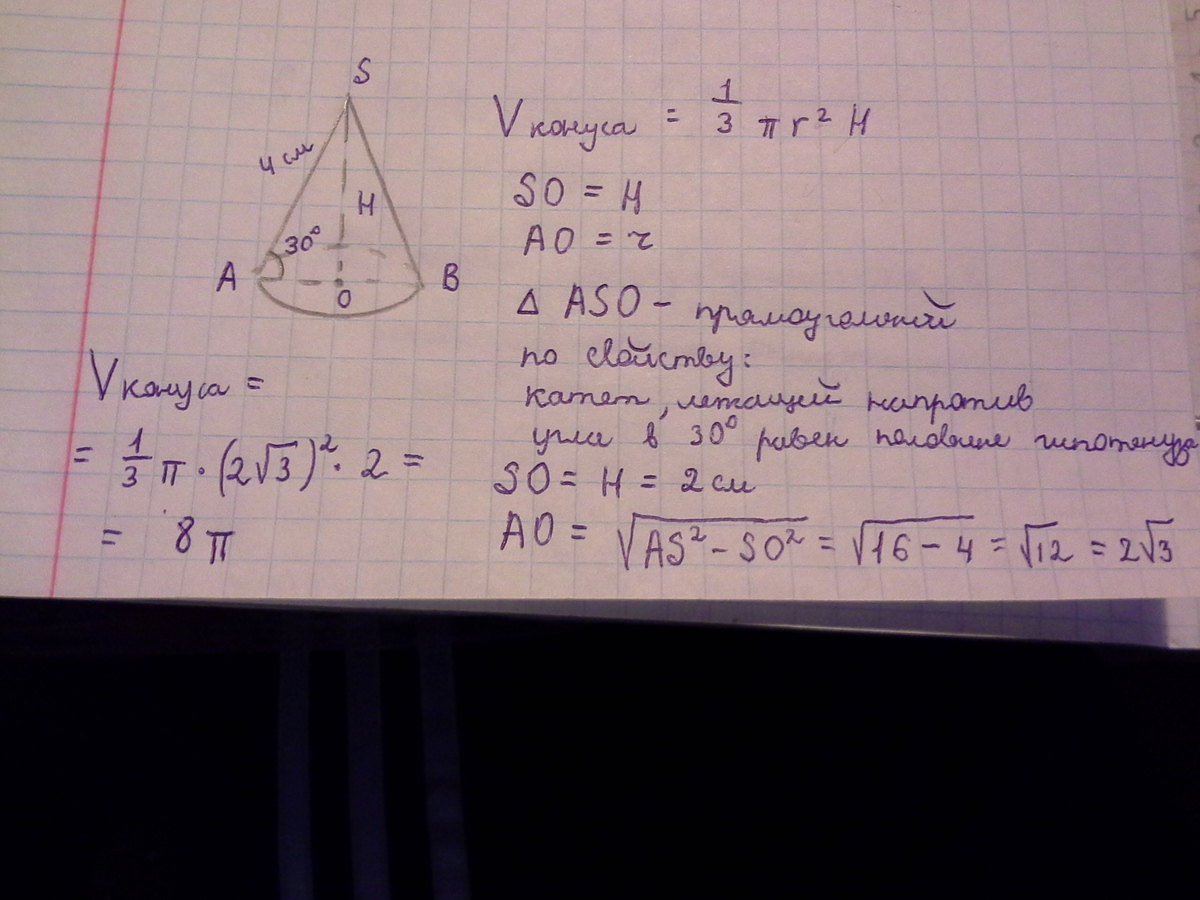 S
4 см
H
30°
A
O
B
V конуса = 1/3 π r² H
SO = H
AO = r
Δ ASO – прямоугольный
по свойству:
катет, лежащий напротив
угла в 30° равен половине гипотенузы
SO = H = 2 см
AO = √(AS² – SO²) = √(16 – 4) = √12 = 2√3
V конуса =
= 1/3 π · (2√3)² · 2 =
= 8 π